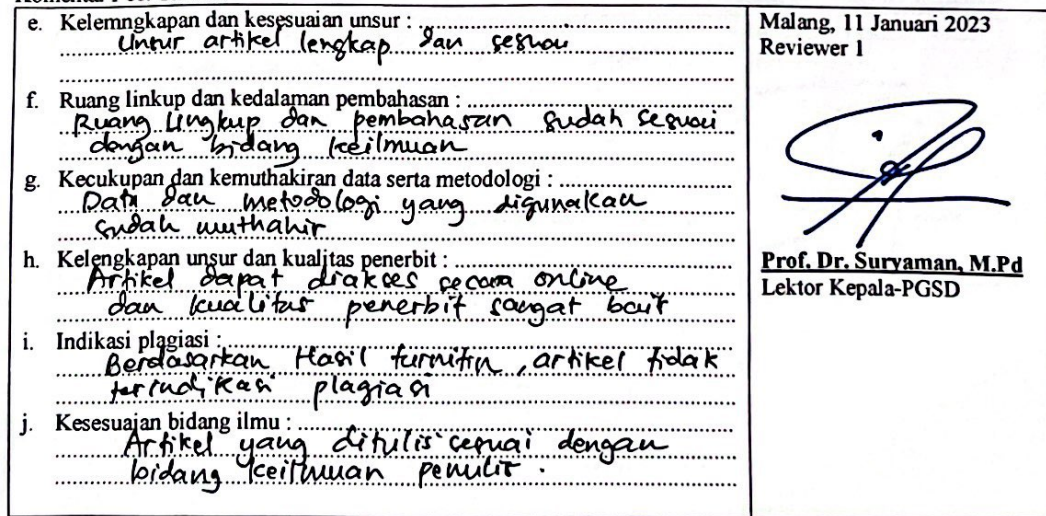 e. Kelemngkapan dan kesesuaian unsur :
Unsur artikel lengkap dan sesuai
f. Ruang linkup dan kedalaman pembahasan :
Ruang lingkup dan pembahasan sudah sesuai
dengan bidang keilmuan
g. Kecukupan dan kemuthakiran data serta metodologi :
Data dan metodologi yang digunakan
sudah muthahir
h. Kelengkapan unsur dan kualitas penerbit :
Artikel dapat diakses secara online
dan kualitas penerbit sangat baik
i. Indikasi plagiasi :
Berdasarkan Hasil turnitin, artikel tidak
terindikasi plagiasi
j. Kesesuaian bidang ilmu :
Artikel yang ditulis sesuai dengan
bidang keilmuan penulis.
Malang, 11 Januari 2023
Reviewer 1
Prof. Dr. Suryaman, M.Pd
Lektor Kepala-PGSD